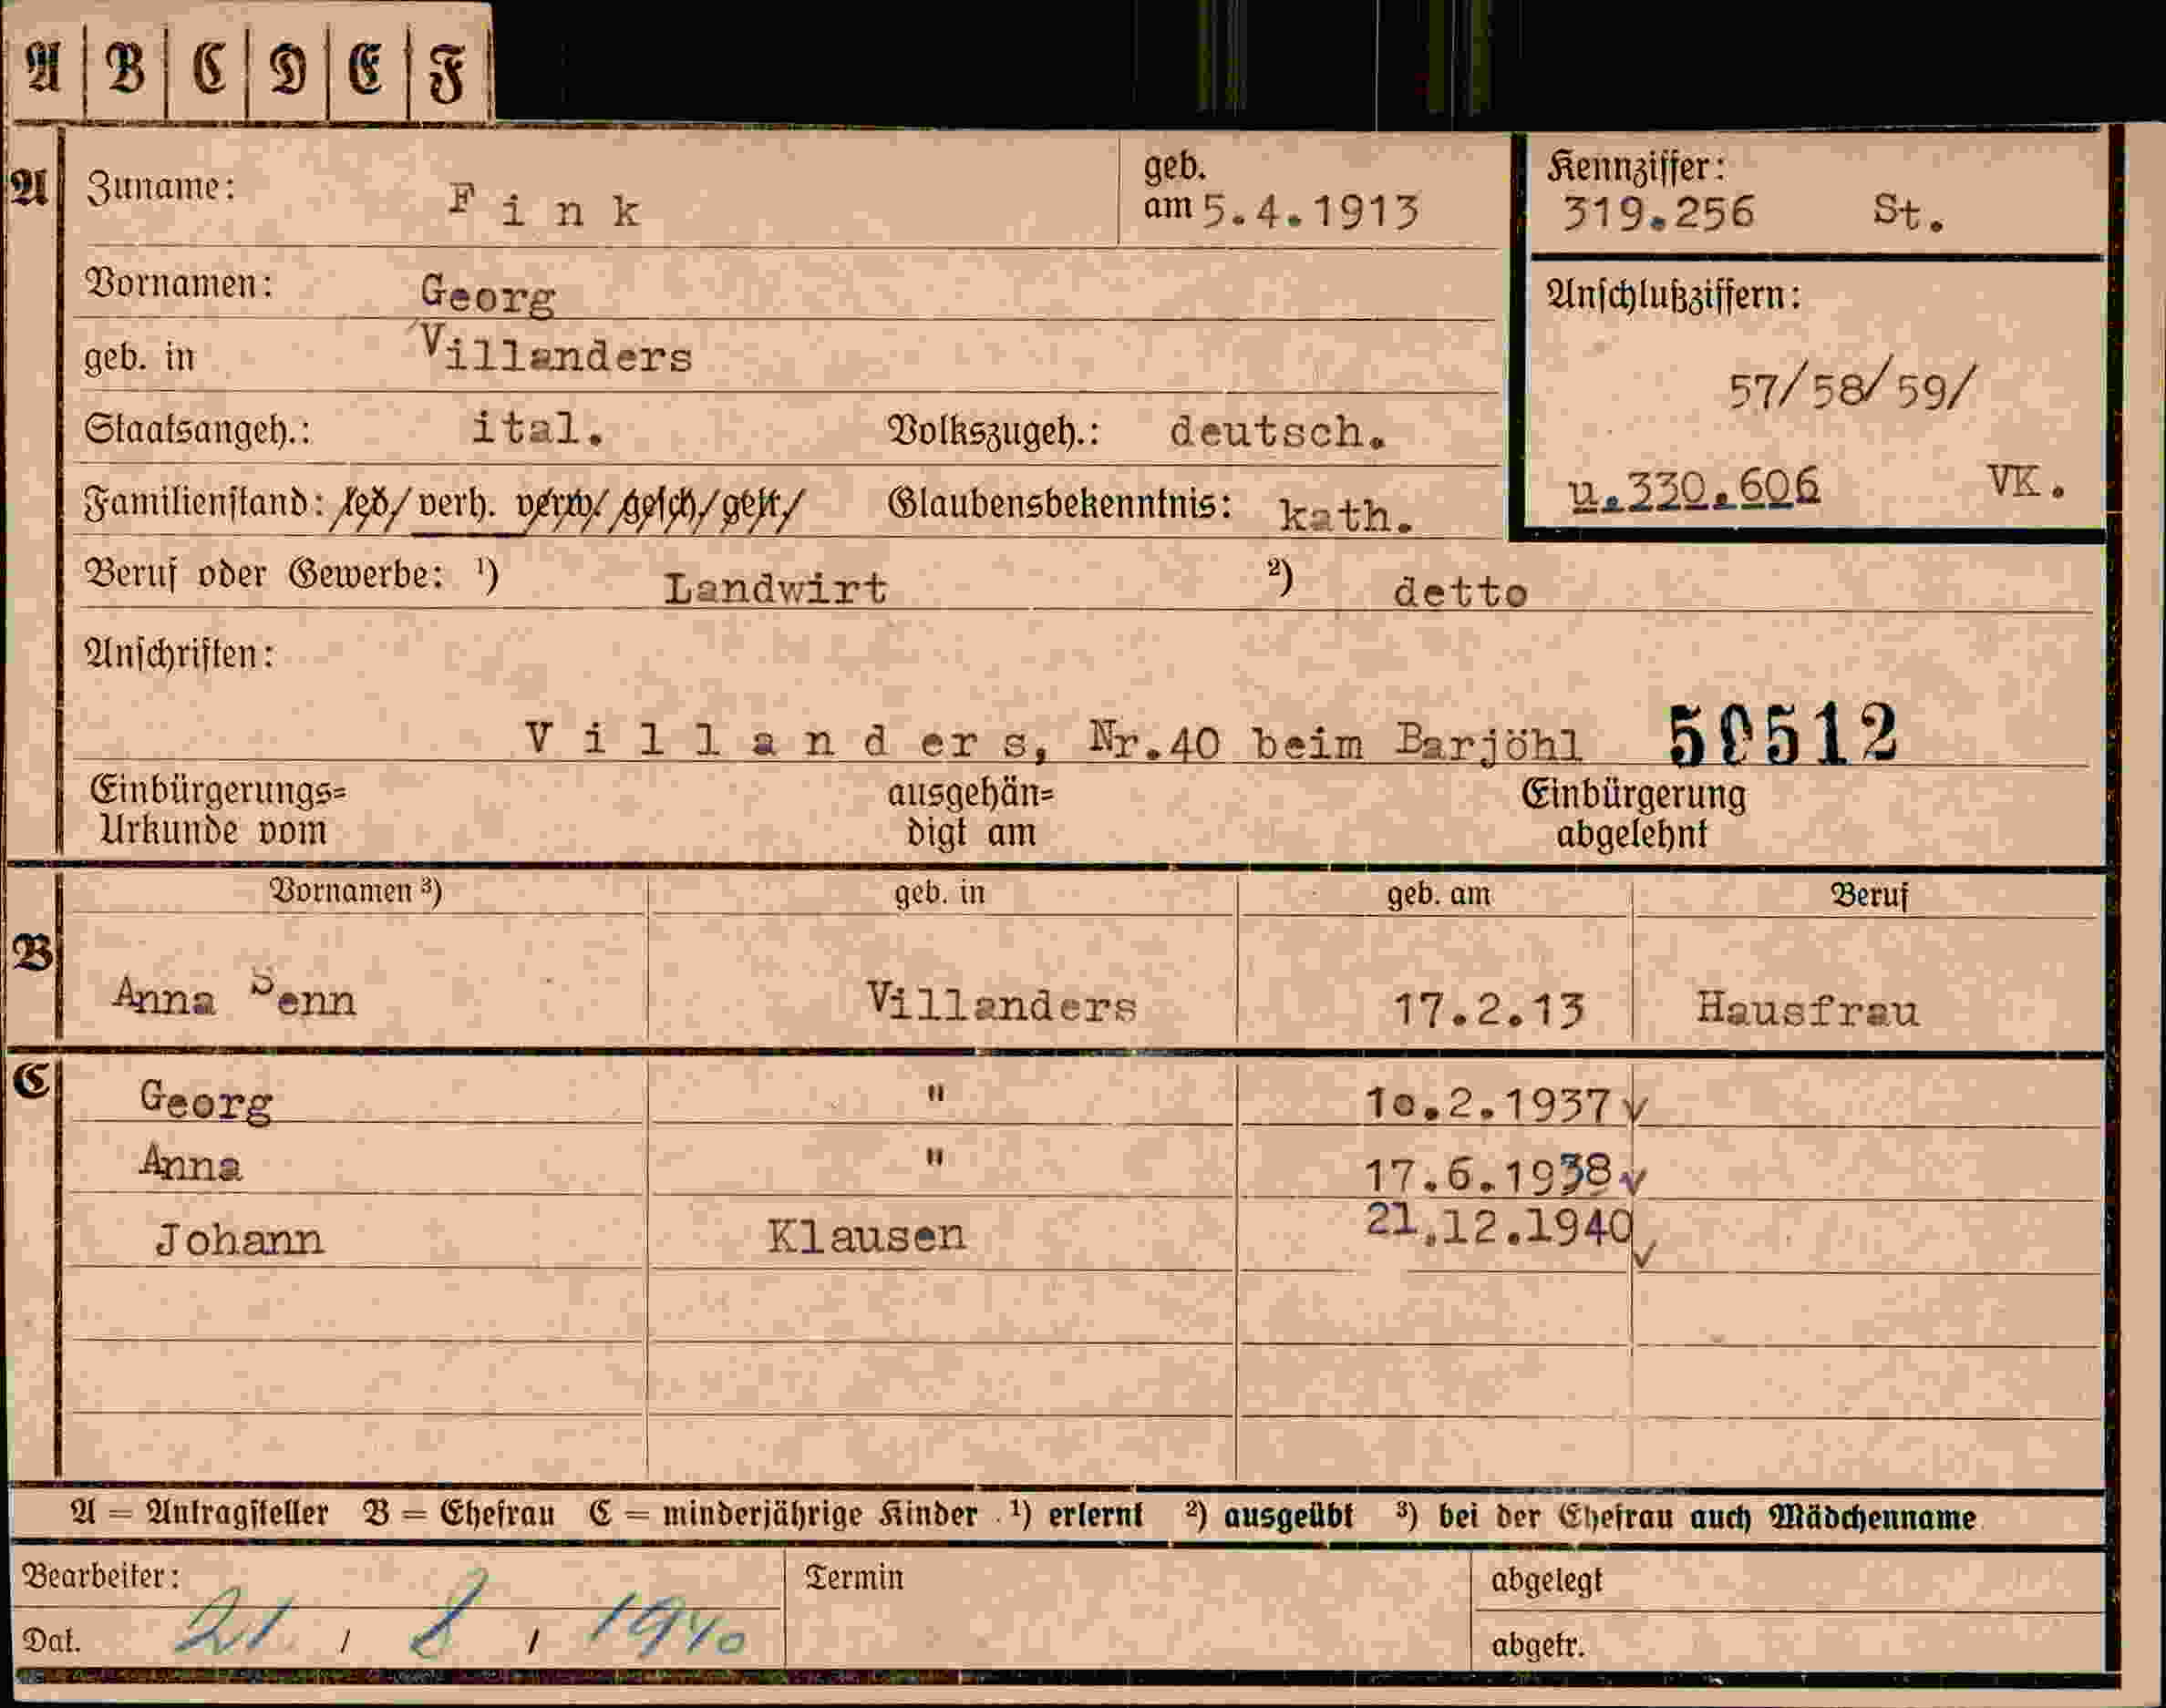 A B C D E F
A Zuname: Fink geb. am 5.4.1913 Kennziffer: 319.256 St.
Vornamen: Georg Anschlußziffern:
geb. in Villanders 57/58/59/
Staatsangeh.: ital. Volkszugeh.: deutsch. u.330.606 VK.
Familienstand: led/ verh. verw/ gesch/ getr/ Glaubensbekenntnis: kath.
Beruf oder Gewerbe: ¹) Landwirt ²) detto
Anschriften:
Villanders, Nr.40 beim Barjöhl 50512
Einbürgerungs= Urkunde vom ausgehän= digt am Einbürgerung abgelehnt
Vornamen ³) geb. in geb. am Beruf
B Anna Senn Villanders 17.2.13 Hausfrau
C Georg " 10.2.1937 v
Anna " 17.6.1938 v
Johann Klausen 21.12.1940 v
A = Antragsteller B = Ehefrau C = minderjährige Kinder ¹) erlernt ²) ausgeübt ³) bei der Ehefrau auch Mädchenname
Bearbeiter: Termin abgelegt
Dat. 21 / / 1940 abgetr.